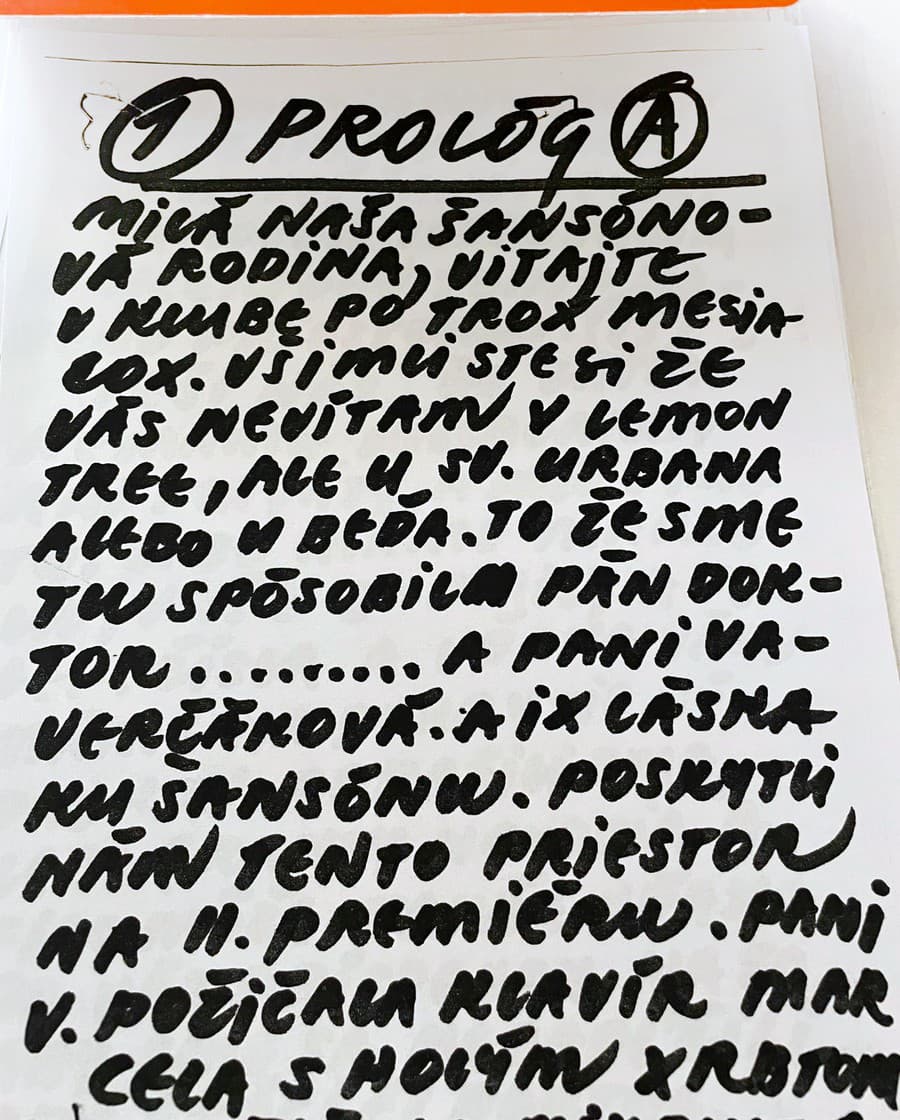 1 PROLÓG A
MILÁ NAŠA ŠANSÓNO-
VÁ RODINA, VITAJTE
V KLUBE PO TROX MESIA-
COX. VŠIMLI STE SI ŽE
VÁS NEVÍTAM V LEMON
TREE, ALE U SV. URBANA
ALEBO U BEĎA. TO ŽE SME
TU SPÔSOBILI PÁN DOK-
TOR .......... A PANI VA-
VERČÁKOVÁ. A IX LÁSKA
KU ŠANSÓNU. POSKYTLI
NÁM TENTO PRIESTOR
NA II. PREMIÉRU. PANI
V. POŽIČALA KLAVÍR MAR
CELA S HOLÝM XRBTOM